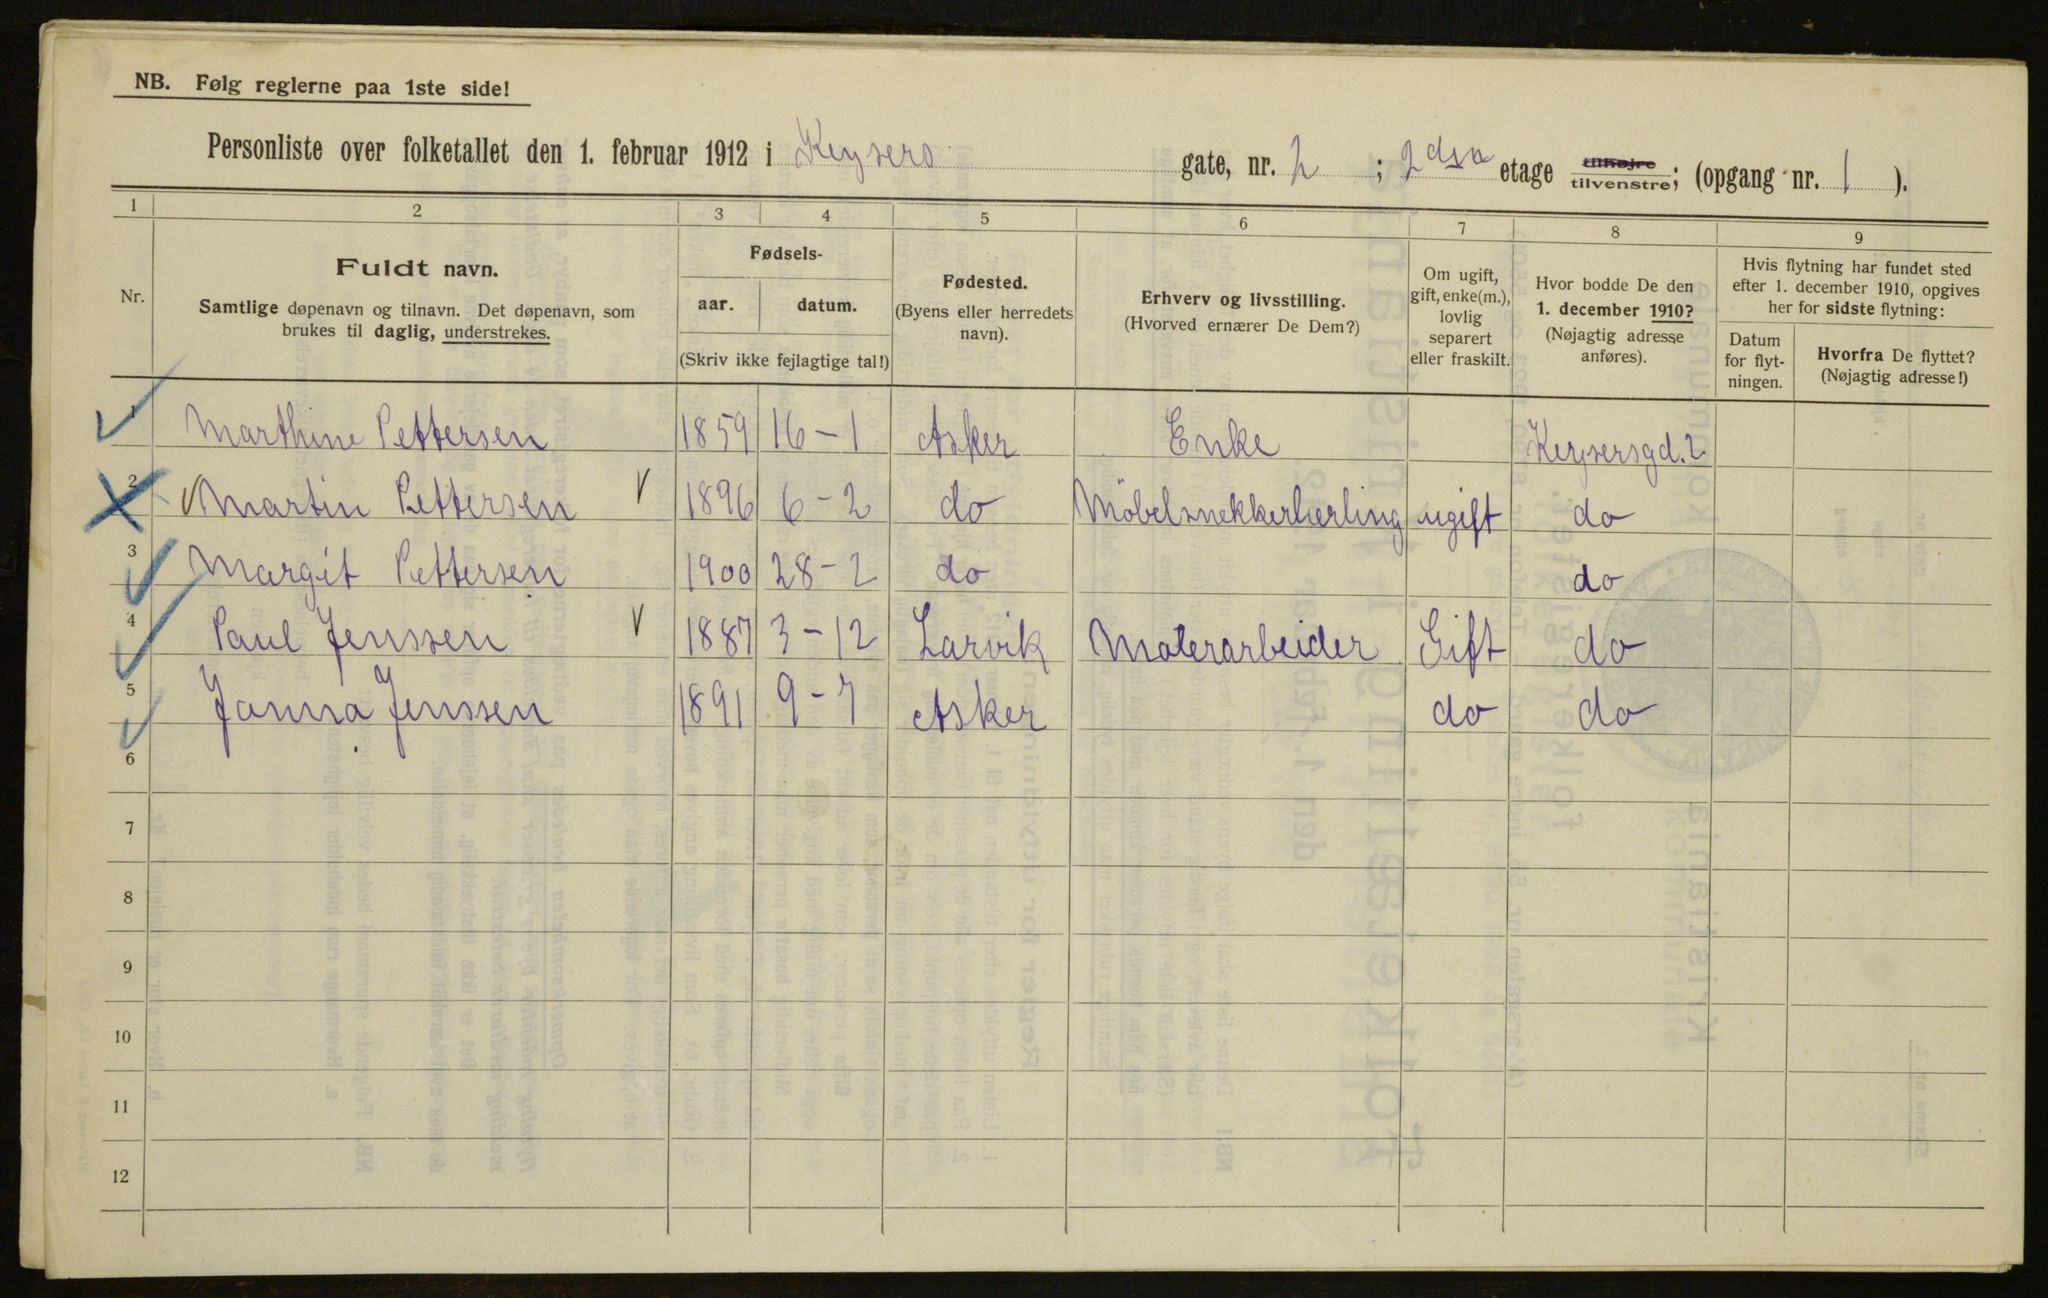 NB. Følg reglerne paa 1ste side!
Personliste over folketallet den 1. februar 1912 i Keysers gate, nr. 2 ; 2den etage tilhøjre tilvenstre; (opgang nr. 1 ).
1 2 3 4 5 6 7 8 9
Nr.
Fuldt navn.
Samtlige døpenavn og tilnavn. Det døpenavn, som
brukes til daglig, understrekes.
Fødsels-
aar. datum.
(Skriv ikke fejlagtige tal!)
Fødested.
(Byens eller herredets
navn).
Erhverv og livsstilling.
(Hvorved ernærer De Dem?)
Om ugift,
gift, enke(m.),
lovlig
separert
eller fraskilt.
Hvor bodde De den
1. december 1910?
(Nøjagtig adresse
anføres).
Hvis flytning har fundet sted
efter 1. december 1910, opgives
her for sidste flytning:
Datum
for flyt-
ningen.
Hvorfra De flyttet?
(Nøjagtig adresse!)
1 Marthine Pettersen 1859 16-1 Asker Enke Keysersgd. 2
2 Martin Pettersen 1896 6-2 do Möbelsnekkerlærling ugift do
3 Margit Pettersen 1900 28-2 do do
4 Paul Jenssen 1887 3-12 Larvik Malerarbeider Gift do
5 Janna Jenssen 1891 9-7 Asker do do
6
7
8
9
10
11
12